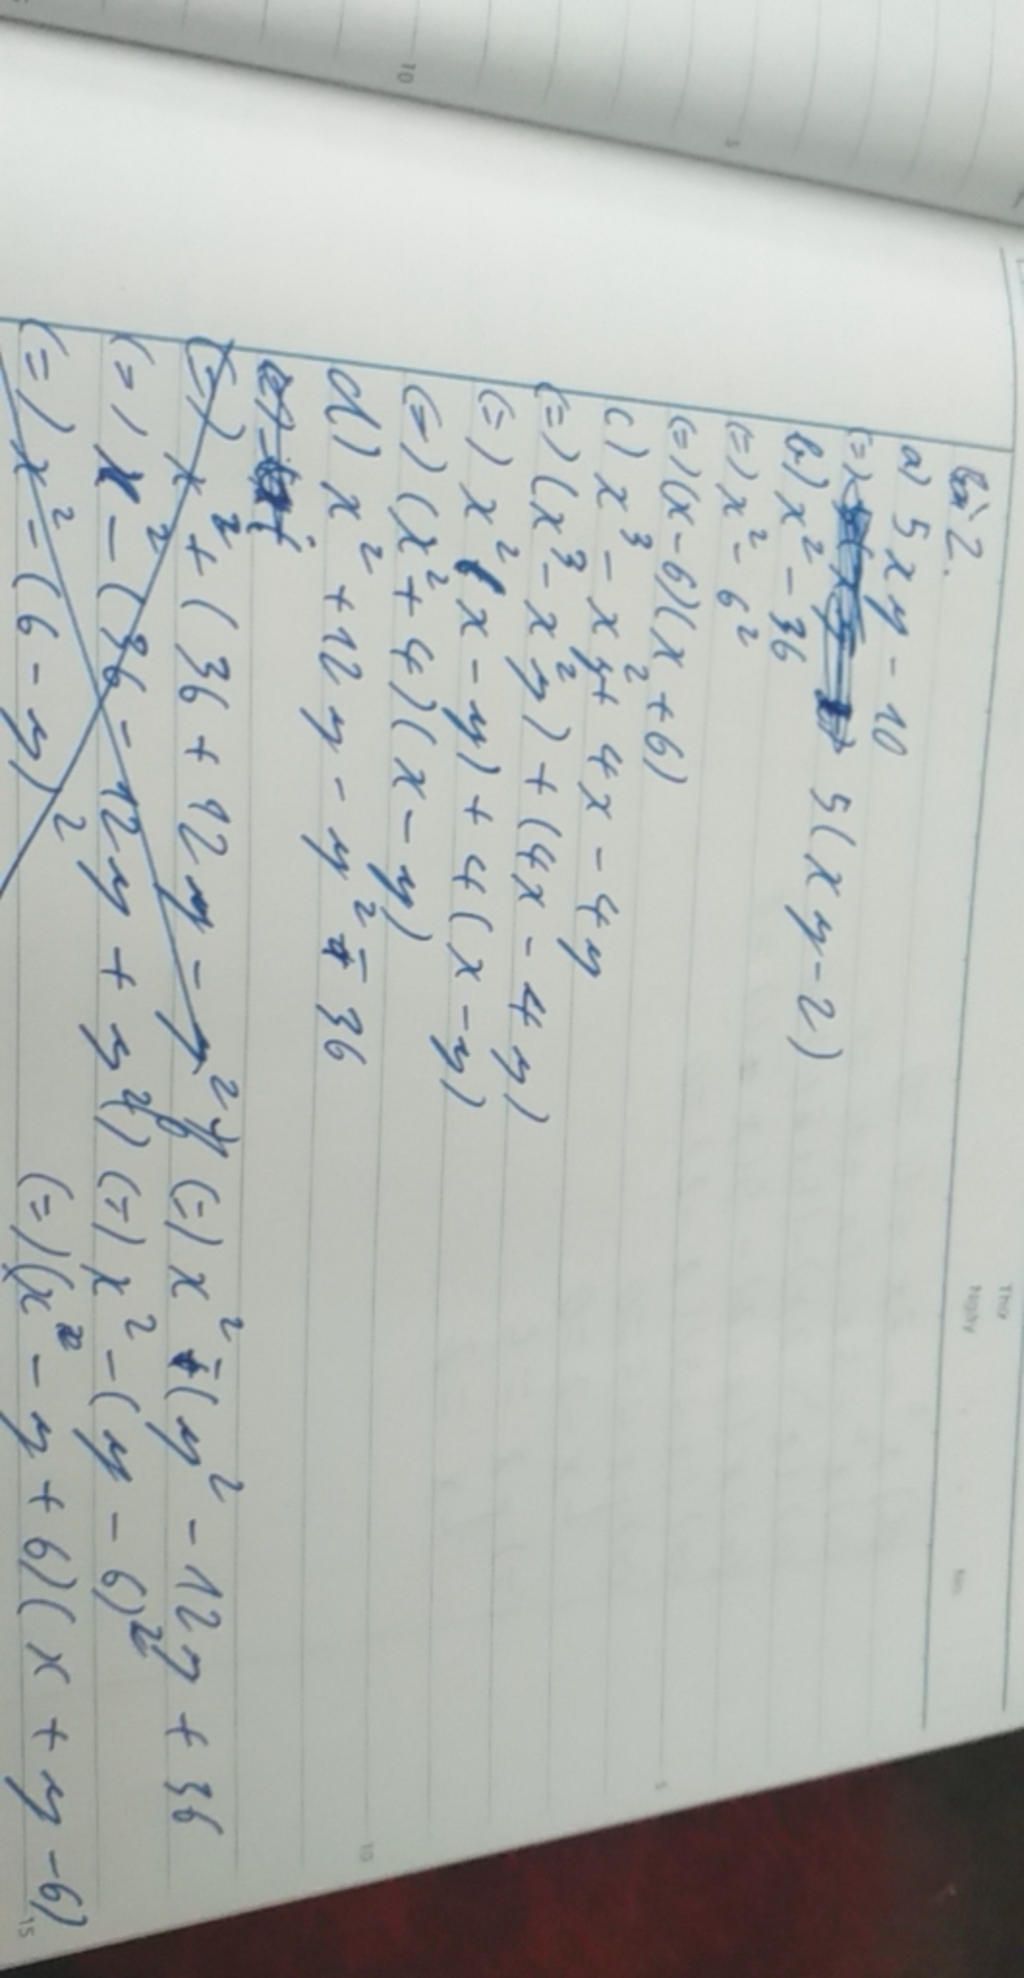 Bài 2.
a) 5xy - 10
(=) 5(xy-2)
b) x² - 36
(=) x² - 6²
(=) (x-6)(x+6)
c) x³ - x²y + 4x - 4y
(=) (x³ - x²y) + (4x - 4y)
(=) x²(x-y) + 4(x-y)
(=) (x²+4)(x-y)
d) x² + 12y - y² - 36
(=) x² + (36 + 12y - y²)
(=) x² - (36 - 12y + y²)
(=) x² - (6-y)²
(=) x² - (y² - 12y + 36
(=) x² - (y - 6)²
(=) (x - y + 6)(x + y - 6)
Thứ
Ngày
5
10
5
10
15